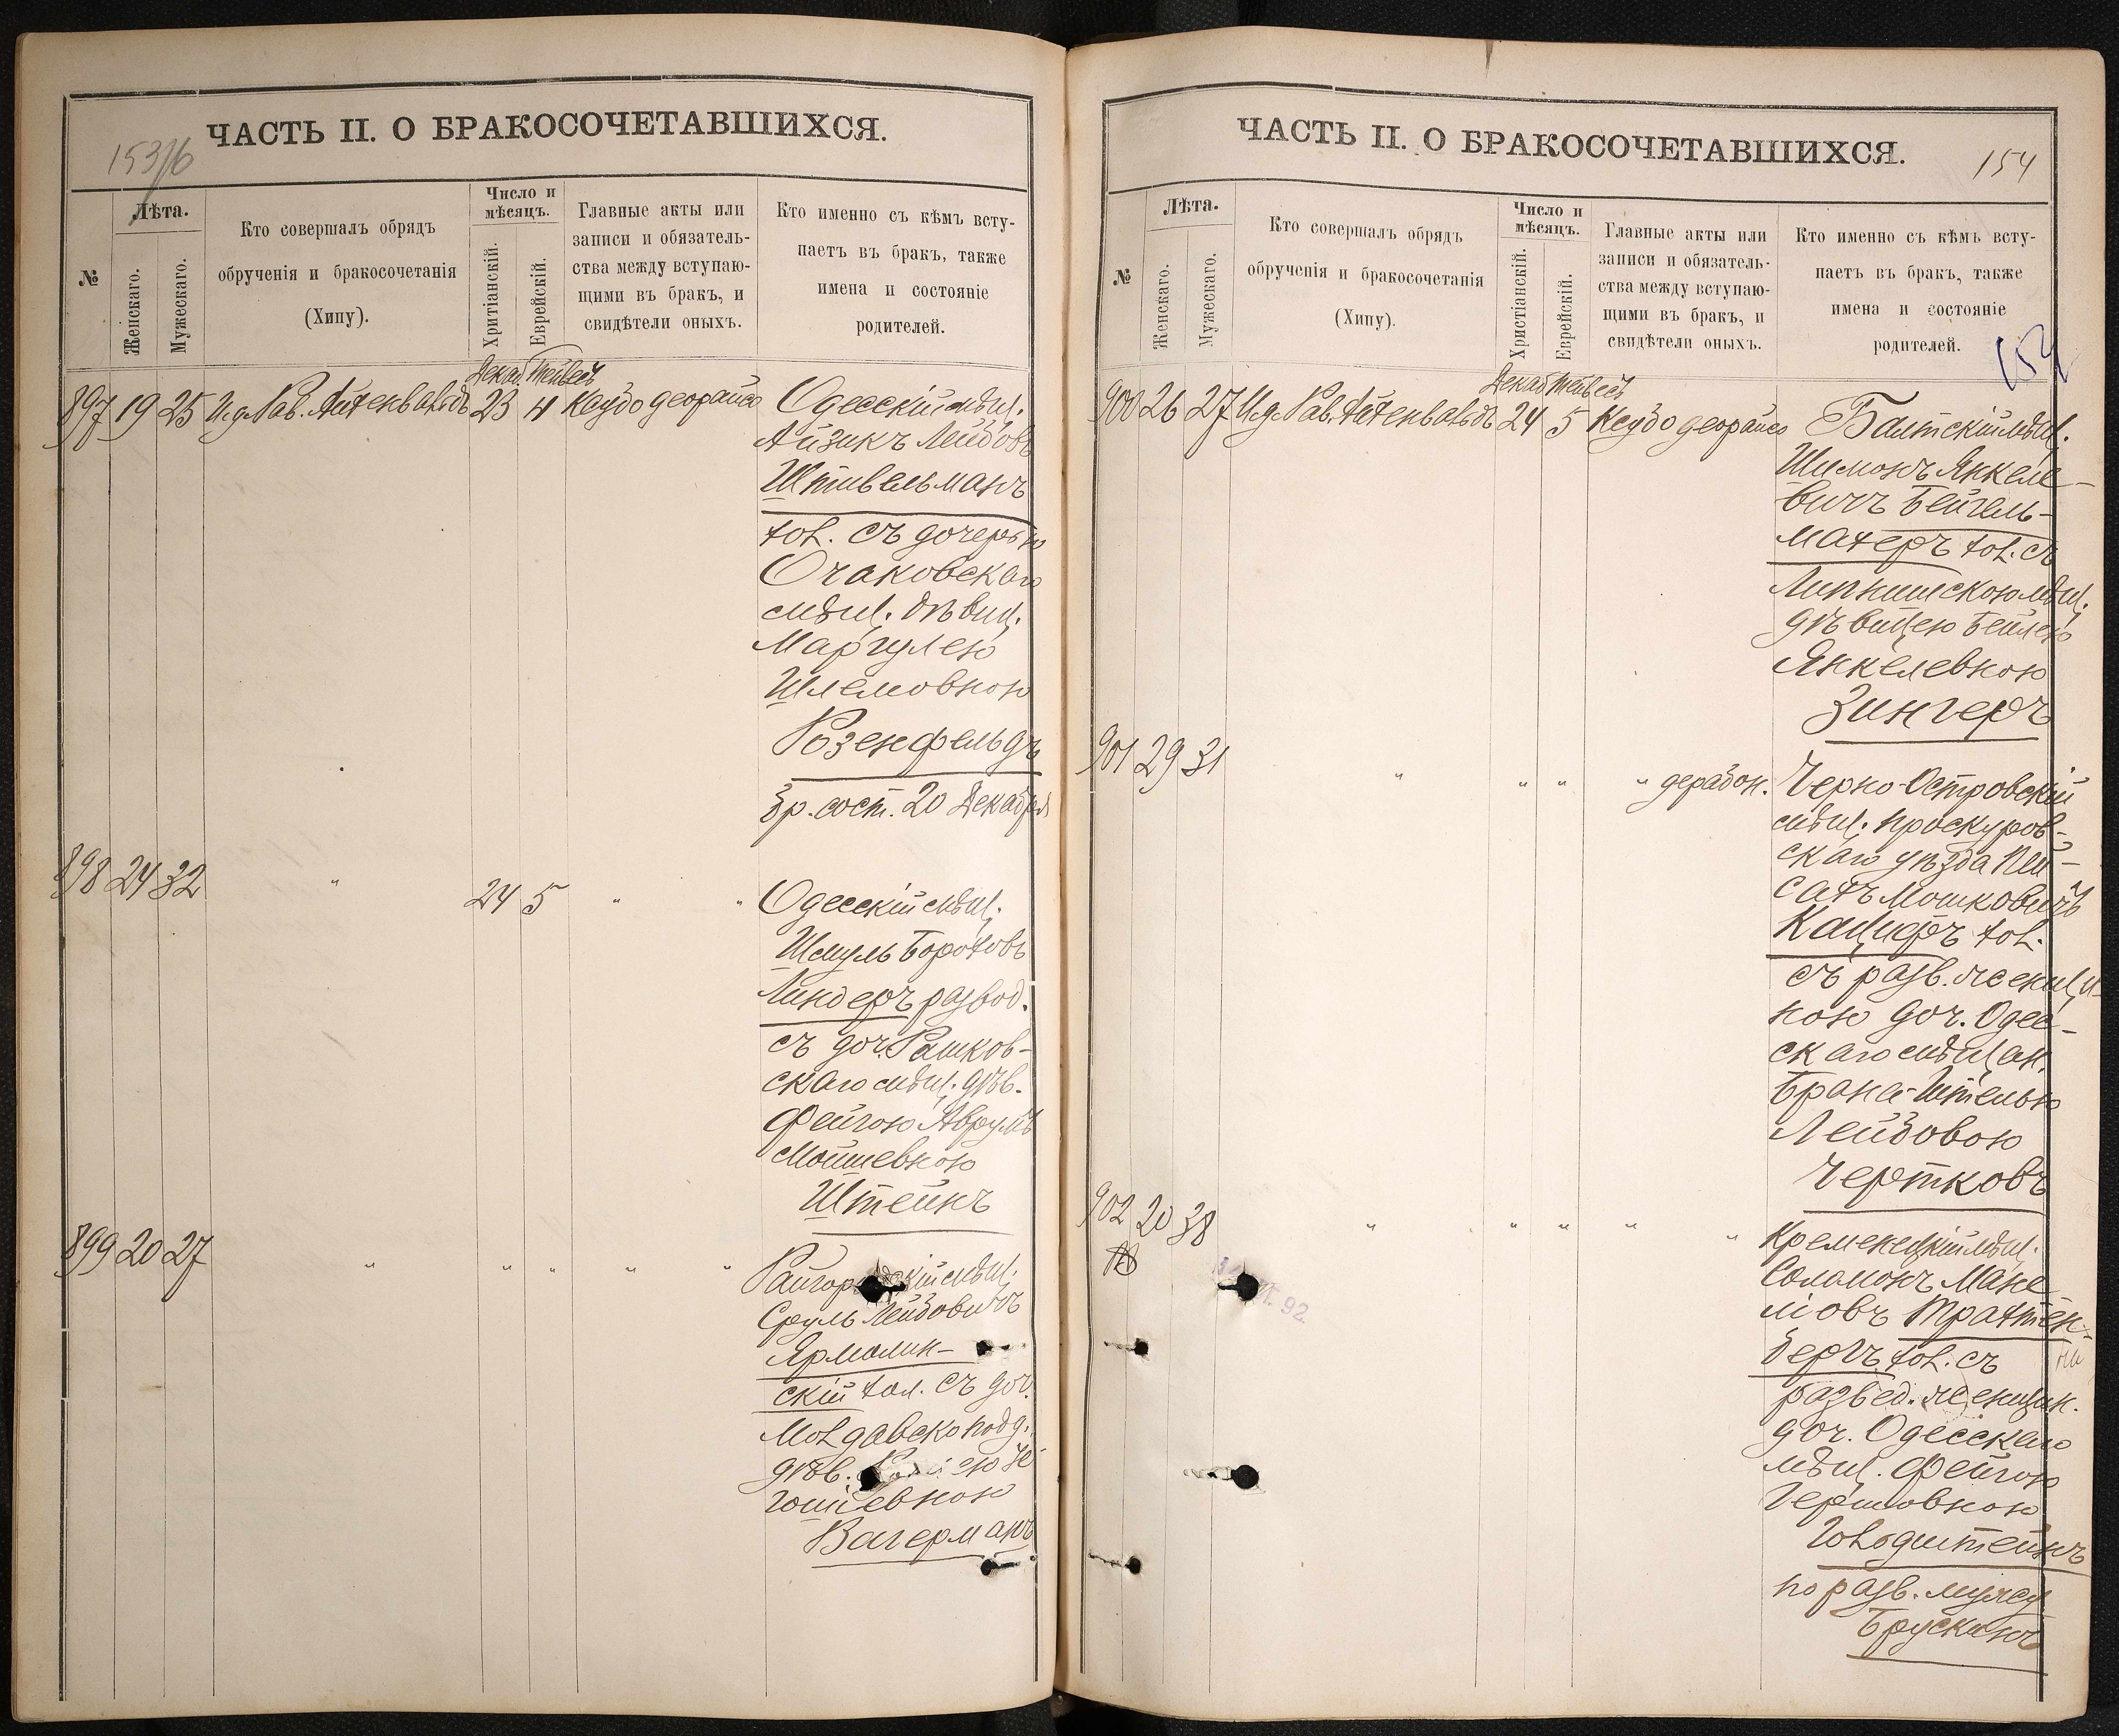 ЧАСТЬ II. О БРАКОСОЧЕТАВШИХСЯ.
№
Лѣта.
Женскаго.
Мужескаго.
Кто совершалъ обрядъ
обрученія и бракосочетанія
(Хипу).
Число и
мѣсяцъ.
Хритіанскій.
Еврейскій.
Главные акты или
записи и обязатель-
ства между вступаю-
щими въ бракъ, и
свидѣтели оныхъ.
Кто именно съ кѣмъ всту-
паетъ въ бракъ, также
имена и состояніе
родителей.
Декаб. Тейвесъ
897 19 25 И.д. Рав. Айхенвальдъ 23 4 Кеудо деорайсо Одесскій мѣщ.
Айзикъ Лейбовъ
Штивельманъ
хол. съ дочерью
Очаковскаго
мѣщ. дѣвиц.
Маргулею
Шлемовною
Розенфельдъ
бр. сост. 20 Декабря
898 24 32 " 24 5 " " Одесскій мѣщ.
Шмуль Бороховъ
Линдеръ развод.
съ доч. Рашков-
скаго мѣщ. дѣв.
Фейгою Аврумъ
Мойшевною
Штейнъ
899 20 27 " " " " "
Сруль Лейбовичъ
Ярмолин-
скій хол. съ доч.
Молдавско подд.
дѣв.
Вагерманъ
ЧАСТЬ II. О БРАКОСОЧЕТАВШИХСЯ.
154
№
Лѣта.
Женскаго.
Мужескаго.
Кто совершалъ обрядъ
обрученія и бракосочетанія
(Хипу).
Число и
мѣсяцъ.
Христіанскій.
Еврейскій.
Главные акты или
записи и обязатель-
ства между вступаю-
щими въ бракъ, и
свидѣтели оныхъ.
Кто именно съ кѣмъ всту-
паетъ въ бракъ, также
имена и состояніе
родителей.
154
Декаб Тейвесъ
900 26 27 И.д. Рав. Айхенвальдъ 24 5 Кеудо деорайсо Балтскій мѣщ.
Шимонъ Янкеле-
вичъ Бейгель-
махеръ хол. съ
мѣщ.
дѣвицею Бейлею
Янкелевною
Зингеръ
901 29 31 " " " " дерабон. Черно-Островскій
мѣщ. Проскуров-
скаго уѣзда Пей-
сахъ Мошковичъ
хол.
съ разв. женщи-
ною доч. Одес-
скаго мѣщан.
Лейбовою
Чертковъ
902 20 38 " " " " " Кременецкій мѣщ.
Соломонъ Мане-
ліовъ Трахтен-
бергъ хол. съ
развед. женщин.
доч. Одесскаго
мѣщ. Фейгою
Гершовною
Гольдштейнъ
по разв. мужу
Брускинъ